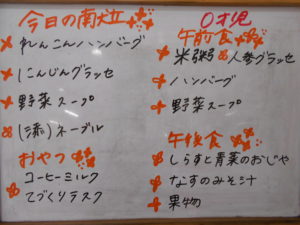 今日の献立
れんこんハンバーグ
にんじんグラッセ
野菜スープ
(添)ネーブル
おやつ
コーヒーミルク
てづくりラスク
0才児
午前食
米粥 人参グラッセ
ハンバーグ
野菜スープ
午後食
しらすと青菜のおじや
なすのみそ汁
果物